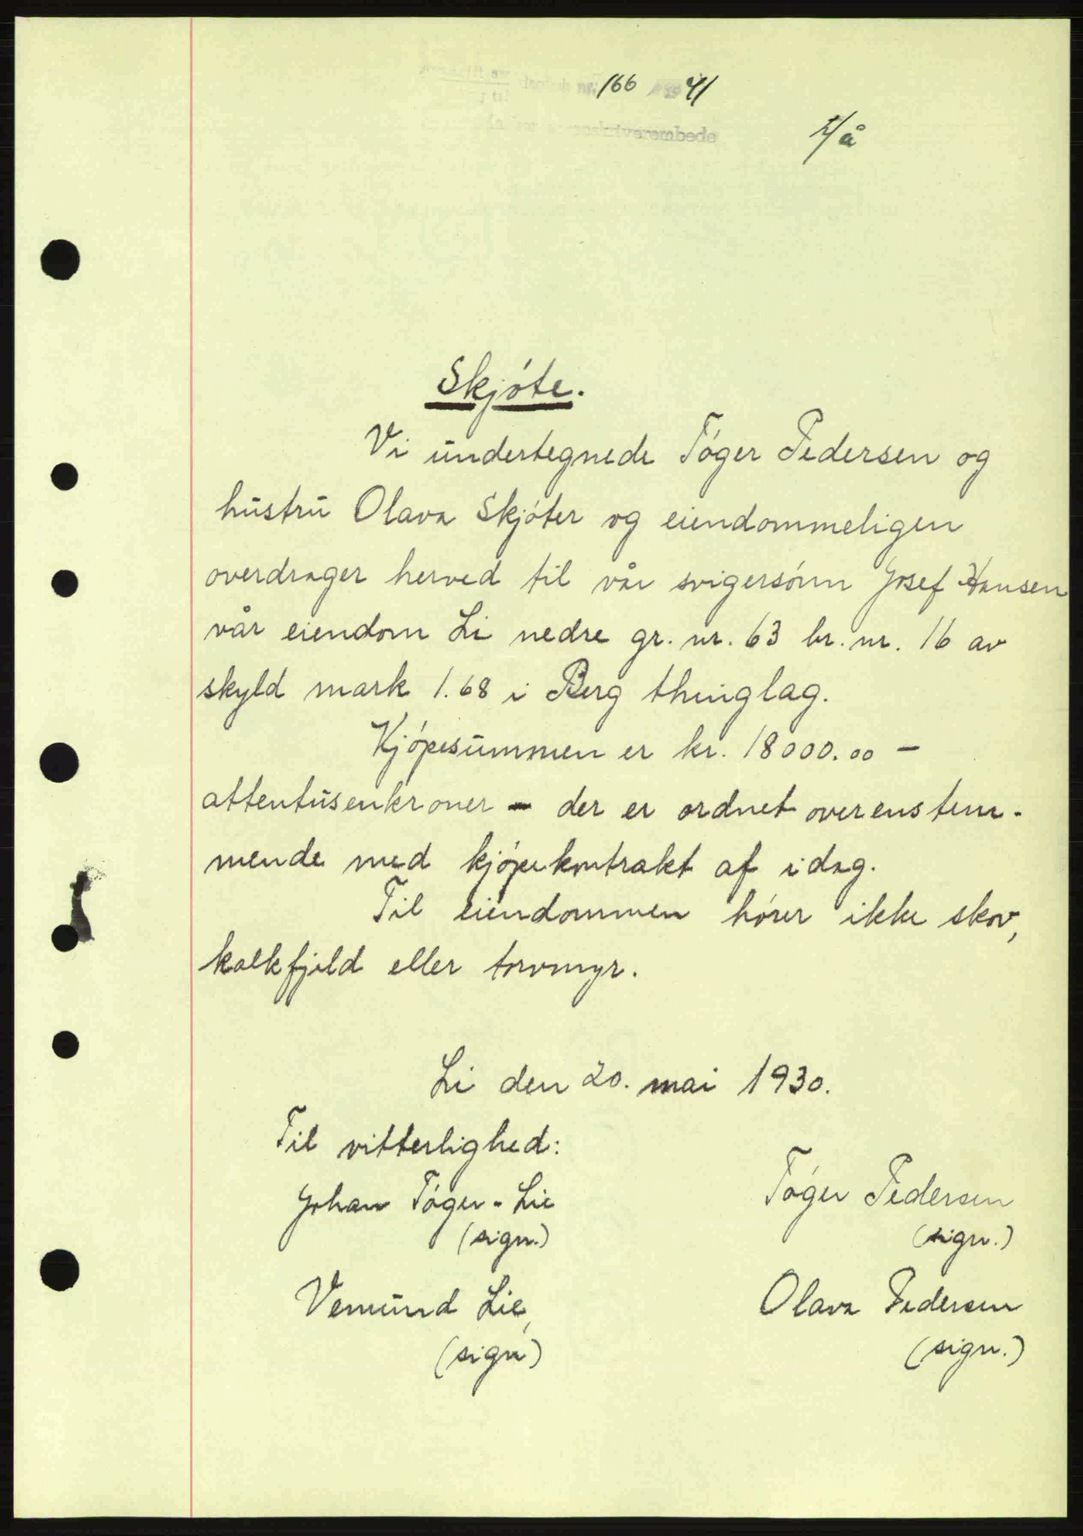 166 41
Skjóte.
Vi undertegnede Tóger Pedersen og
hustru Olava Skjóter og eiendommeligen
overdrager herved til vår svigersónn Josef Hansen
vår eiendom Li nedre gr. nr. 63 br. nr. 16 av
skyld mark 1.68 i Berg thinglag.
Kjópesummen er kr. 18000.00 -
attentusenkroner - der er ordnet overenstem-
mende med kjópekontrakt af idag.
Til eiendommen hórer ikke skov,
kalkfjeld eller torvmyr.
Li den 20. mai 1930.
Til vitterlighed:
Johan Tóger - Lie
(sign.)
Tóger Pedersen
(sign.)
Vemund Lie,
(sign)
Olava Pedersen
(sign.)